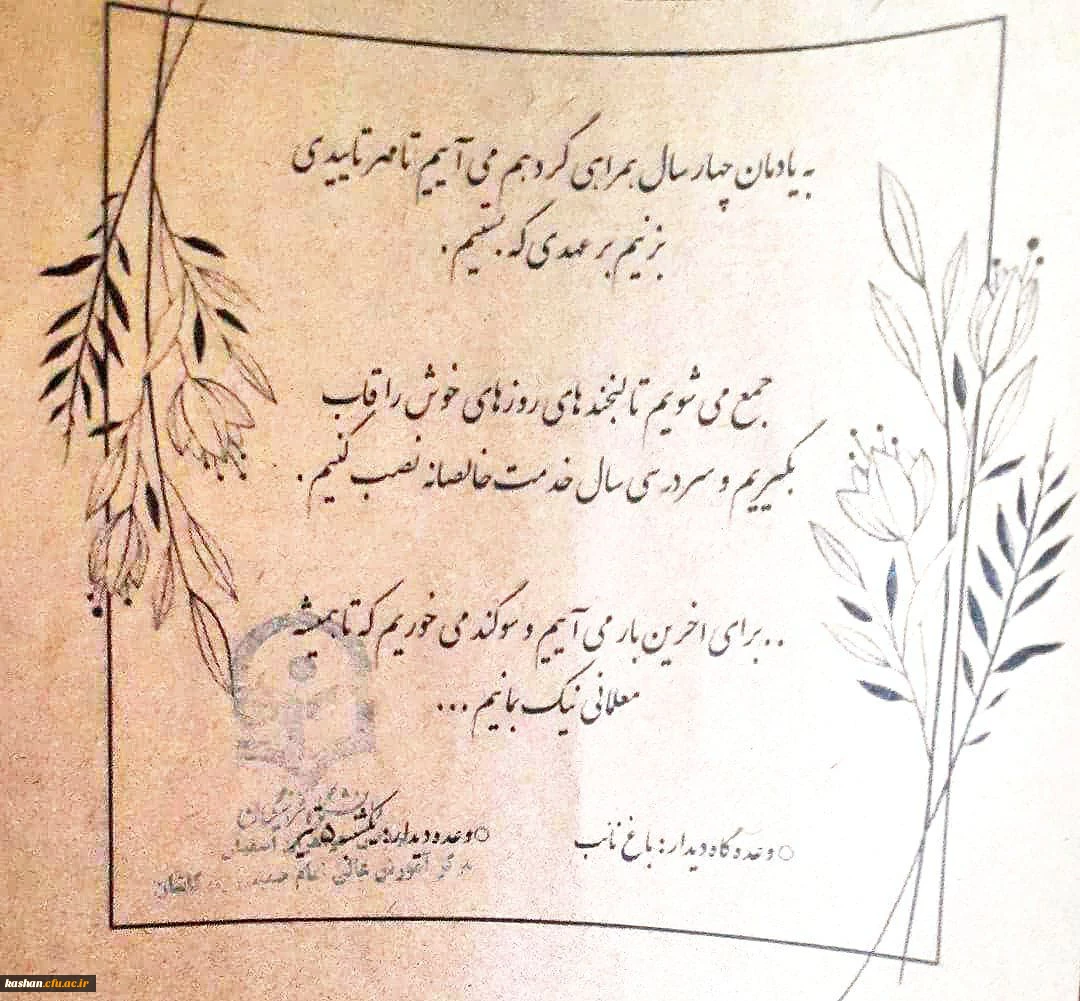 به یادمان چهار سال همراهی گرد هم می آییم تا مهر تاییدی
بزنیم بر عهدی که بستیم .
جمع می شویم تا لبخند های روز های خوش را قاب
بگیریم و سردر سی سال خدمت خالصانه نصب کنیم .
..برای اخرین بار می آییم و سوگند می خوریم که تا همیشه
معلمانی نیک بمانیم ...
وعده گاه دیدار: باغ نائب
وعده دیدار: یکشنبه ۵ تیر
دانشگاه فرهنگیان
مرکز آموزش عالی امام کاشان
kashan.cfu.ac.ir